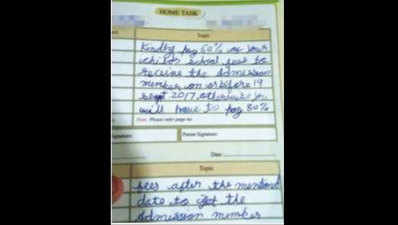 HOME TASK
Topic
Kindly pay 50% of your
child's school fees to
receive the admission
number on or before 19
Sept 2017, otherwise you
will have to pay 80%
Note: Please refer page no.
Parent Signature:
Date
Topic
fees after the mentiond
date to get the
Admission number